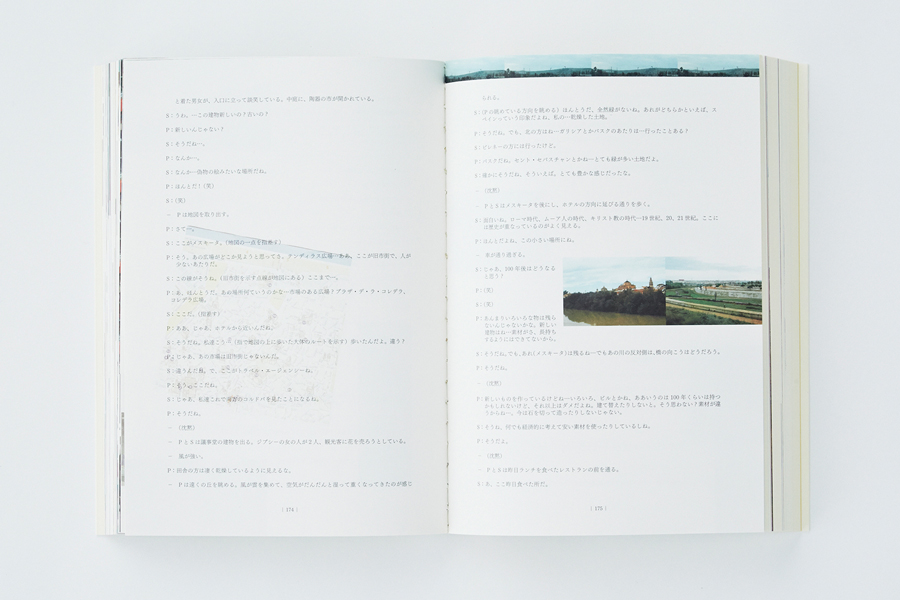 と着た男女が、入口に立って談笑している。中庭に、陶器の市が開かれている。
S：うわ、一この建物新しいの？古いの？
P：新しいんじゃない？
S：そうだね一。
P：なんか一。
S：なんか一動物の絡みたいな場所だね。
P：ほんとだ！（笑）
S：（笑）
－ Pは地図を取り出す。
P：さて一。
S：ここがメスキータ。（地図の一点を指差す）
P：そう。あの広場がどこか見ようと思ってさ。テンディラス広場一ああ、ここが旧市街で、人が
少ないあたりだ。
S：この線がそうね。（旧市街を示す点線が地図にある）ここまで一。
P：あ、ほんとうだ。あの場所何ていうのかな一市場のある広場？プラザ・デ・ラ・コレデラ。
コレデラ広場。
S：ここだ。（指差す）
P：ああ、じゃあ、ホテルから近いんだね。
S：そうだね。私達こう一（指で地図の上に歩いた大体のルートを示す）歩いたんだよ。違う？
P：じゃあ、あの市場は旧市街じゃないんだ。
S：違うんだ。え、で、ここがトラベル・エージェンシーね。
P：そう。ここだね。
S：じゃあ、私達これで複数のコルドバを見たことになるね。
P：そうだね。
－ （沈黙）
－ PとSは議事堂の建物を出る。ジプシーの女の人が2人、観光客に花を売ろうとしている。
－ 風が強い。
P：田舎の方は凄く乾燥しているように見えるな。
－ Pは遠くの丘を眺める。風が雲を集めて、空気がだんだんと湿って重くなってきたのが感じ
（174）
られる。
S：（Pの眺めている方向を眺める）ほんとうだ。全然緑がないね。あれがどちらかといえば、ス
ペインっていう印象だよね、私の一乾燥した土地。
P：そうだね。でも、北の方はね一ガリシアとかバスクのあたりは一行ったことある？
S：ピレネーの方には行ったけど。
P：バスクだね。セント・セバスチャンとかね一とても緑が多い土地だよ。
S：確かにそうだね、そういえば。とても豊かな感じだったな。
－ （沈黙）
－ PとSはメスキータを後にし、ホテルの方向に延びる通りを歩く。
S：面白いね。ローマ時代、ムーア人の時代、キリスト教の時代一19世紀、20、21世紀。ここに
は歴史が重なっているのがよく見える。
P：ほんとだよね。この小さい場所にね。
－ 車が通り過ぎる。
S：じゃあ、100年後はどうなる
と思う？
P：（笑）
S：（笑）
P：あんまりいろいろな物は残ら
ないんじゃないかな。新しい
建物はね一素材がさ、長持ち
するようにはできてないから。
S：そうだね。でも、あれ（メスキータ）は残るね一でもあの川の反対側は、橋の向こうはどうだろう。
P：そうだね。
－ （沈黙）
P：新しいものを作っているけどね一いろいろ。ビルとかね。ああいうのは100年くらいは持つ
かもしれないけど、それ以上はダメだよね。建て替えたりしないと。そう思わない？素材が違
うからね一。今は石を切って造ったりしないじゃない。
S：そうね。何でも経済的に考えて安い素材を使ったりしているしね。
P：そうだよ。
－ （沈黙）
－ PとSは昨日ランチを食べたレストランの前を通る。
S：あ、ここ昨日食べた所だ。
（175）